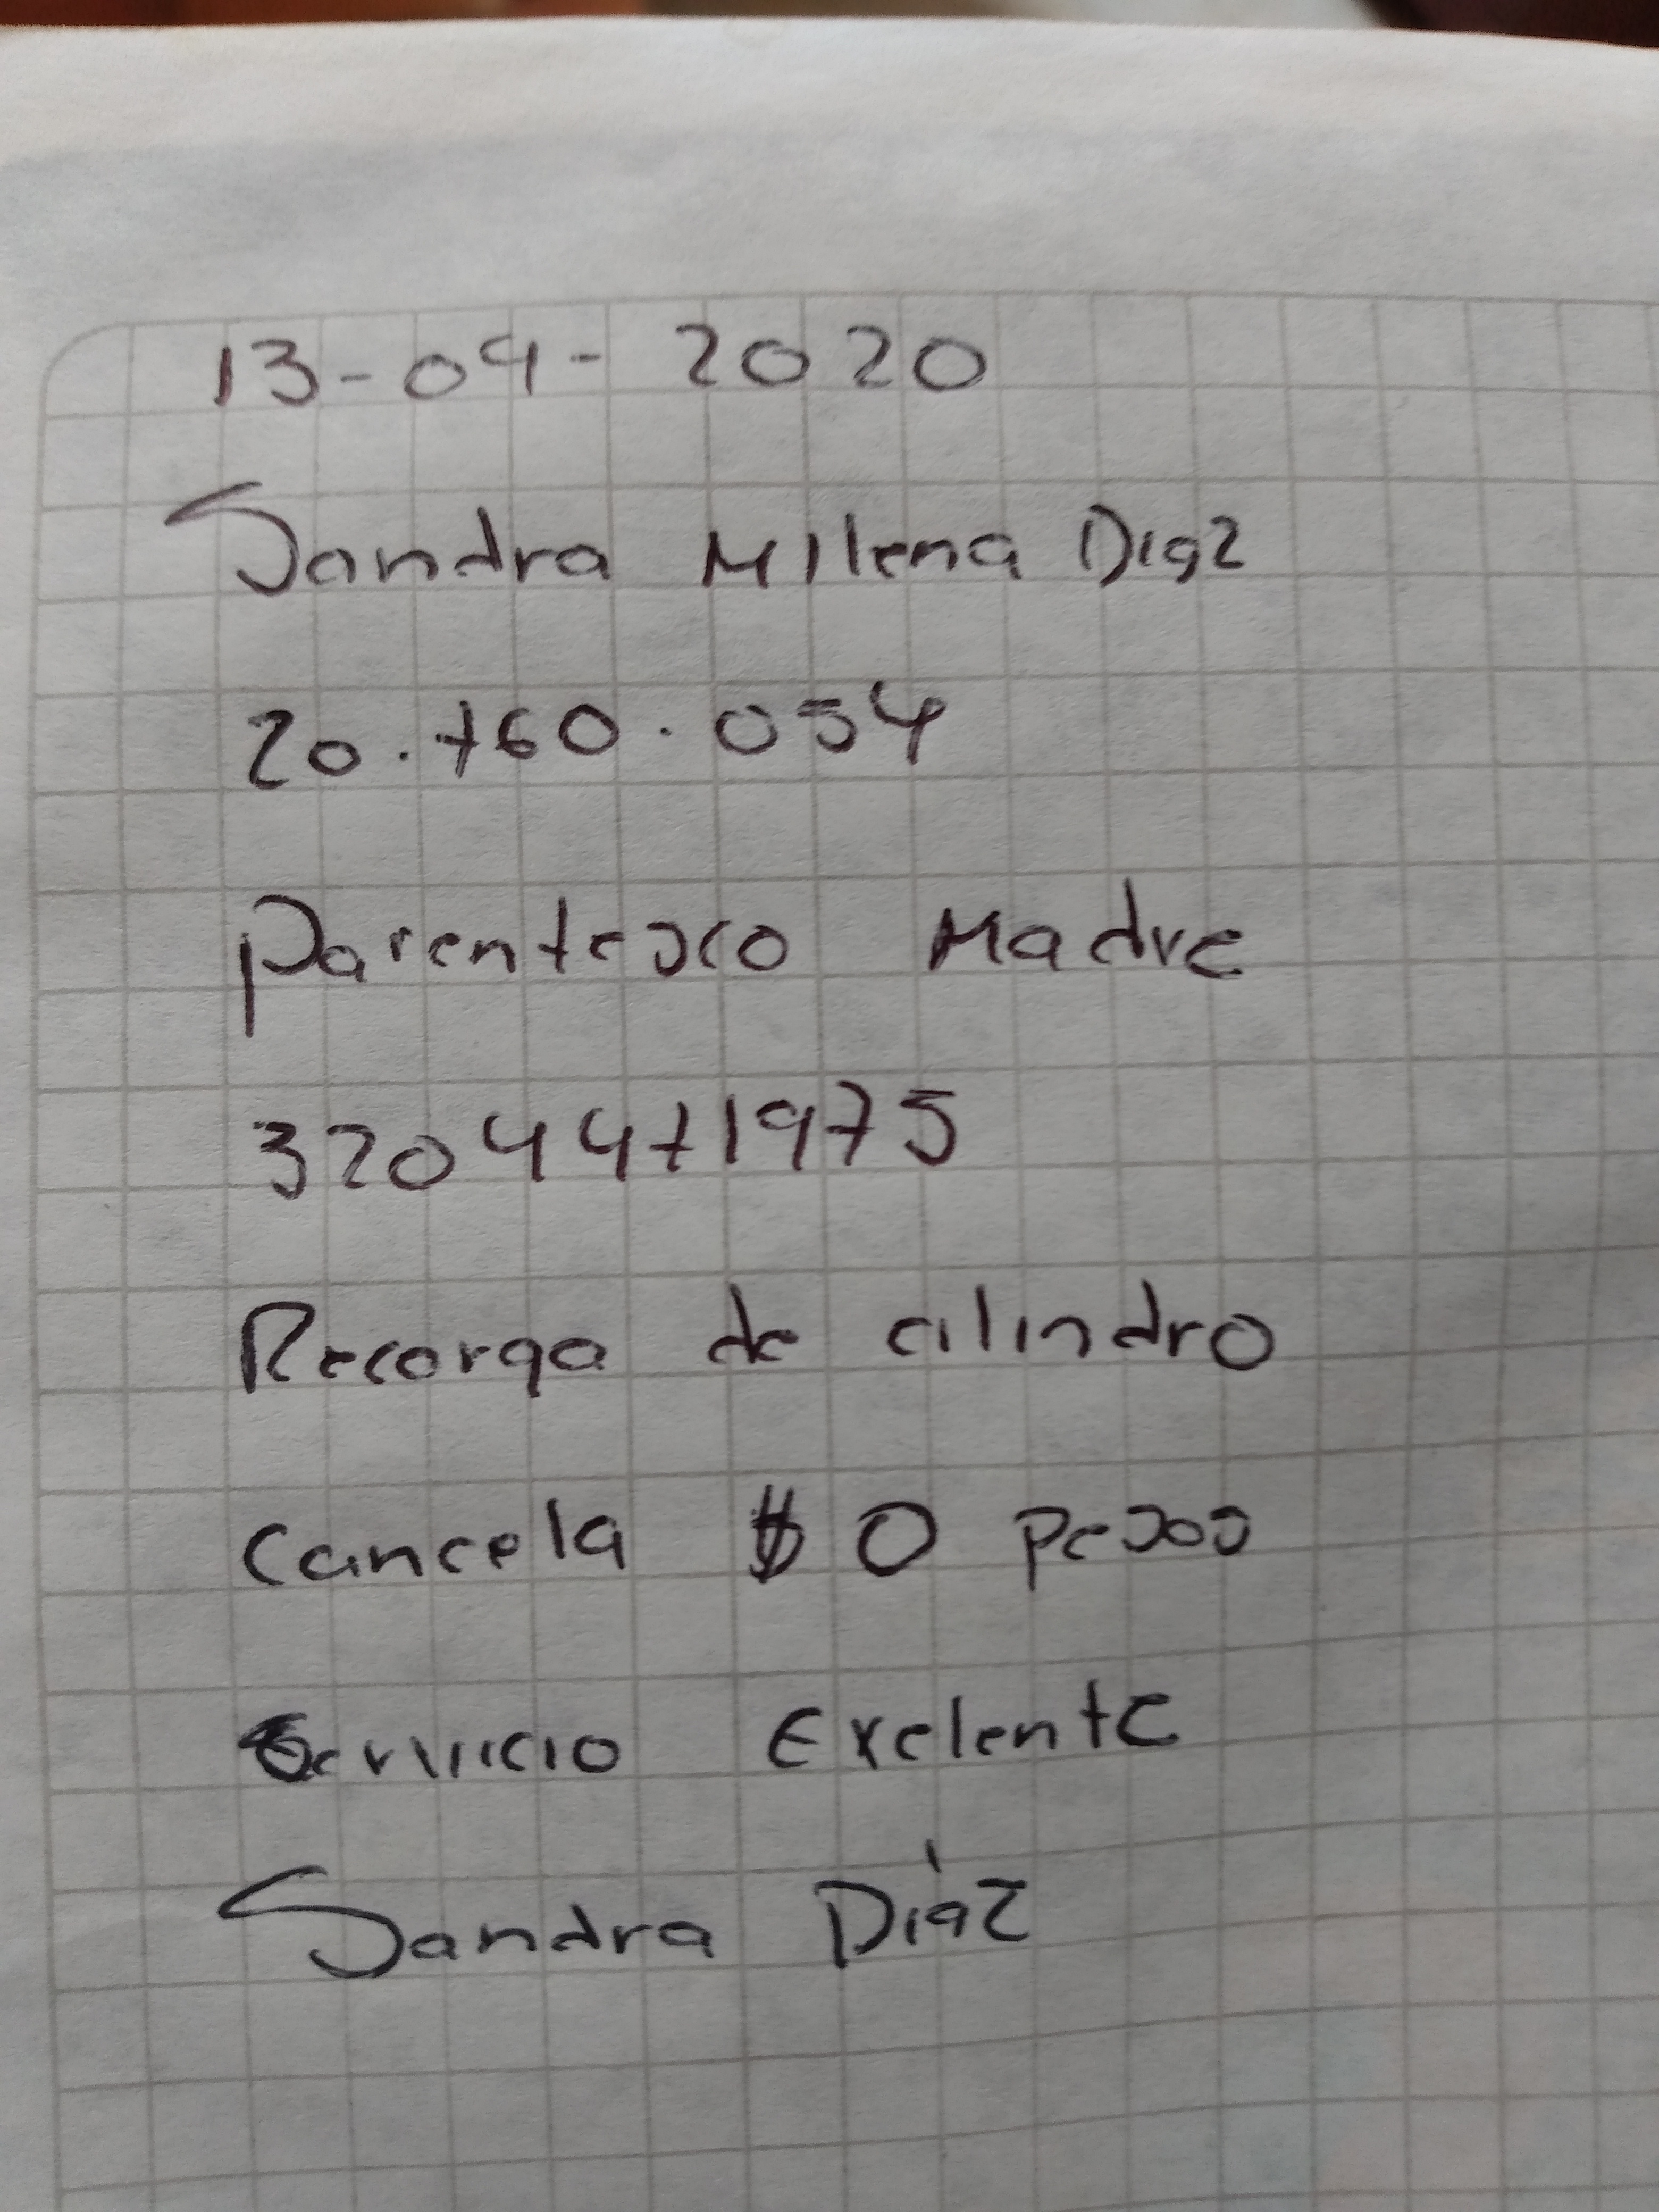 13-04-2020
Sandra Milena Diaz
20.760.054
Parentesco Madre
3204471975
Recarga de cilindro
Cancela $0 pesos
Servicio Exelente
Sandra Díaz